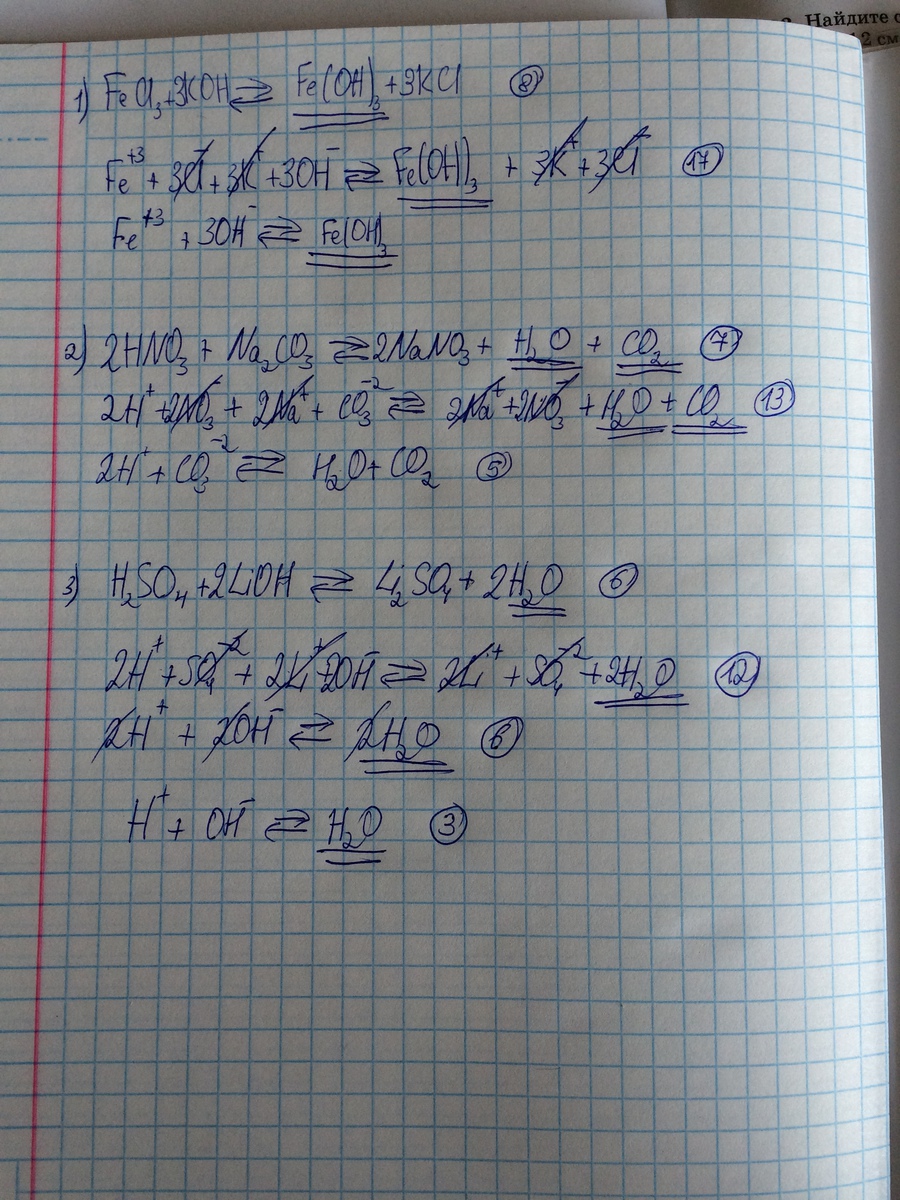 3. Найдите с
12 см
1) FeCl₃+3KOH ⇄ Fe(OH)₃+3KCl ⑧
Fe⁺³ + 3Cl⁻ + 3K⁺ + 3OH⁻ ⇄ Fe(OH)₃ + 3K⁺ + 3Cl⁻ ⑰
Fe⁺³ + 3OH⁻ ⇄ Fe(OH)₃
2) 2HNO₃ + Na₂CO₃ ⇄ 2NaNO₃ + H₂O + CO₂ ⑦
2H⁺ + 2NO₃⁻ + 2Na⁺ + CO₃⁻² ⇄ 2Na⁺ + 2NO₃⁻ + H₂O + CO₂ ⑬
2H⁺ + CO₃⁻² ⇄ H₂O + CO₂ ⑤
3) H₂SO₄ + 2LiOH ⇄ Li₂SO₄ + 2H₂O ⑥
2H⁺ + SO₄⁻² + 2Li⁺ + 2OH⁻ ⇄ 2Li⁺ + SO₄⁻² + 2H₂O ⑫
2H⁺ + 2OH⁻ ⇄ 2H₂O ⑥
H⁺ + OH⁻ ⇄ H₂O ③